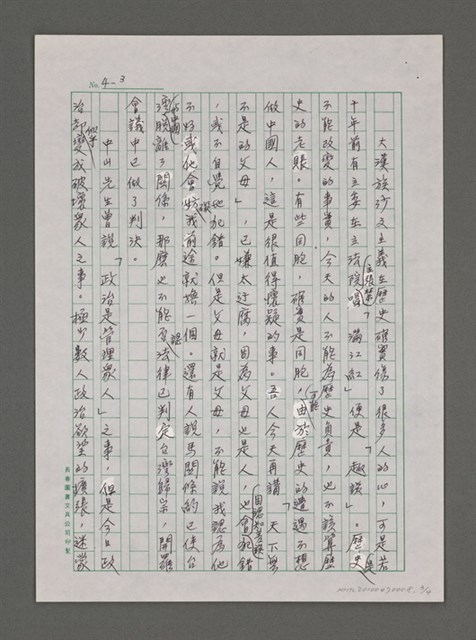 No. 4-3
大漢族沙文主義在歷史確實傷了很多人的心，可是若
十年前有立委在立法院唱「滿江紅」便是「趣談」。歷史是
不能改變的事實，今天的人不能為歷史負責，也不該算歷
史的老賬。有些同胞，確實是同胞，由於歷史的遭遇不想
做中國人，這是很值得懷疑的事。吾人今天再講「天下無
不是的父母」，已嫌太迂腐，因為父母也是人，也會犯錯
，或不自覺他犯錯。但是父母就是父母，不能說我認為他
不好或他會妨我前途就換一個。還有人說馬關條約已使台
灣脫離了關係，那麼也不能否認法律已判定台灣歸宗，開羅
會議中已做了判決。
中山先生曾說「政治是管理眾人」之事，但是今日政
治卻似乎變成破壞眾人之事。極少數人政治欲望的擴張，迷蒙
長春圖書文具公司印製